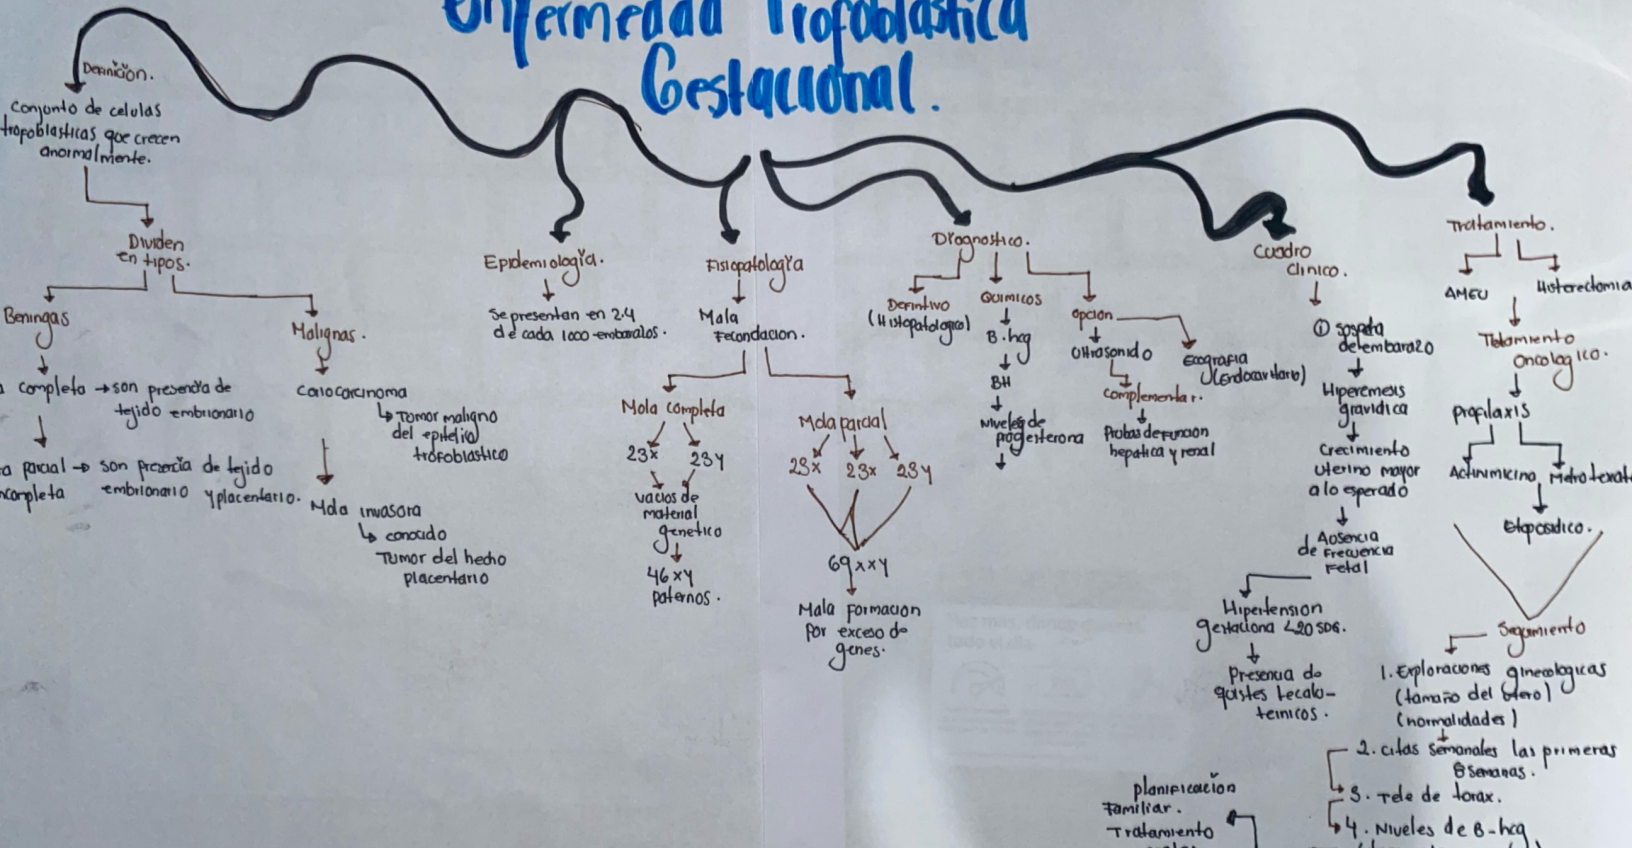 Enfermedad Trofoblástica
Gestacional.
Definición.
Conjunto de celulas
tropoblasticas que crecen
anormalmente.
Dividen
en tipos.
Beningas
completa → son presencia de
tejido embrionario
parcial → son presencia de tejido
embrionario y placentario.
Malignas.
Coriocarcinoma
↳ Tomor maligno
del epitelio
trofoblastico
Mola invasora
↳ conocido
Tumor del hecho
placentario
Epidemiología.
Se presentan en 2.4
de cada 1000 embarazos.
Fisiopatología
Mala
Fecondacion.
Mola completa
23x 23y
vacios de
material
genetico
46xy
paternos.
Mola parcial
23x 23x 23y
69xxy
Mala formacion
por exceso de
genes.
Diagnostico.
Definitivo
(Histopatologico)
Quimicos
B-hcg
BH
Niveles de
progesterona
opcion
Ultrasonido
Complementar.
Probas de funcion
hepatica y renal
Ecografia
(Endocavitario)
Cuadro
Clinico.
① sospeta
de embarazo
Hiperemesis
gravidica
Crecimiento
uterino mayor
a lo esperado
Ausencia
de Frecuencia
Fetal
Hipertension
gestaciona <20 SDG.
Presencia de
quistes tecalo-
teinicos.
Tratamiento.
AMEU
Histerectomia
Tratamiento
oncologico.
profilaxis
Actinimicina
Metrotexat
Etoposidico.
Seguimiento
1. Exploraciones ginecologicas
(tamaño del utero)
(normalidades)
2. citas semanales las primeras
8 semanas.
3. Tele de torax.
4. Niveles de B-hcg
planificación
Familiar.
Tratamiento